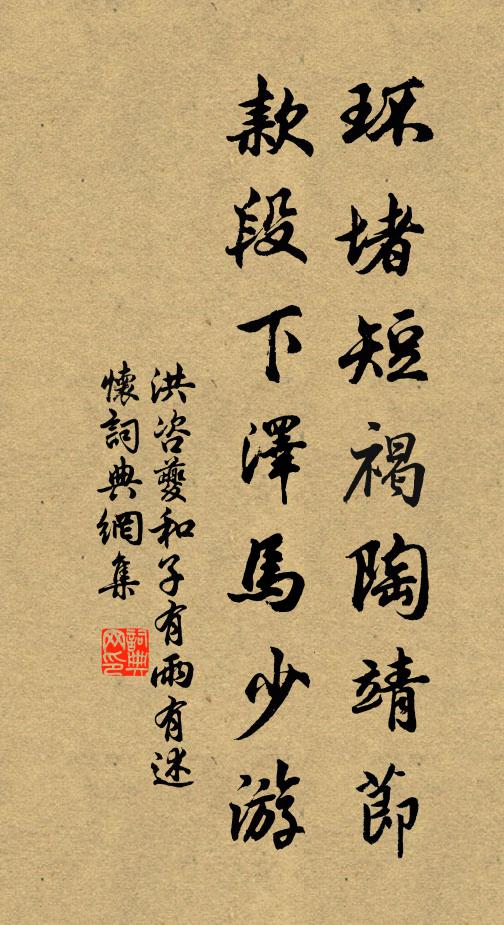 环堵短褐陶靖節
款段下澤馬少游
洪咨夔和子有雨有述
懷詞典網集
詞典
网印